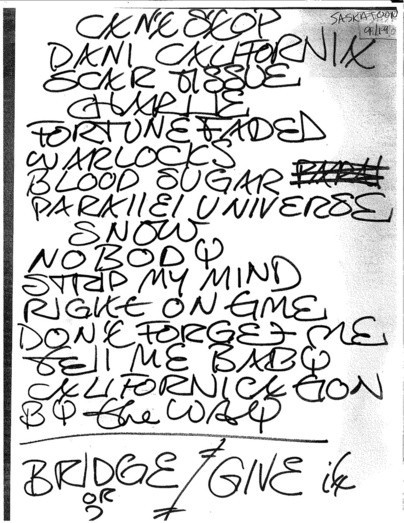 SASKATOON
CANT STOP
DANI CALIFORNIA
SCAR TISSUE
CHARLIE
FORTUNE FADED
WARLOCKS
BLOOD SUGAR
PARAllEl UNIVERSE
SNOW
NOBODY
STRIP MY MIND
RIGHT ON TIME
DON'T FORGET ME
TEll ME BABY
CALIFORNICATION
BY the WAY
BRIDGE / GIVE it
OR
?